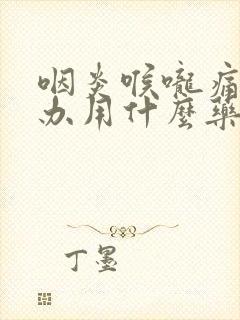 咽炎喉嚨痛
办用什麼藥
丁墨